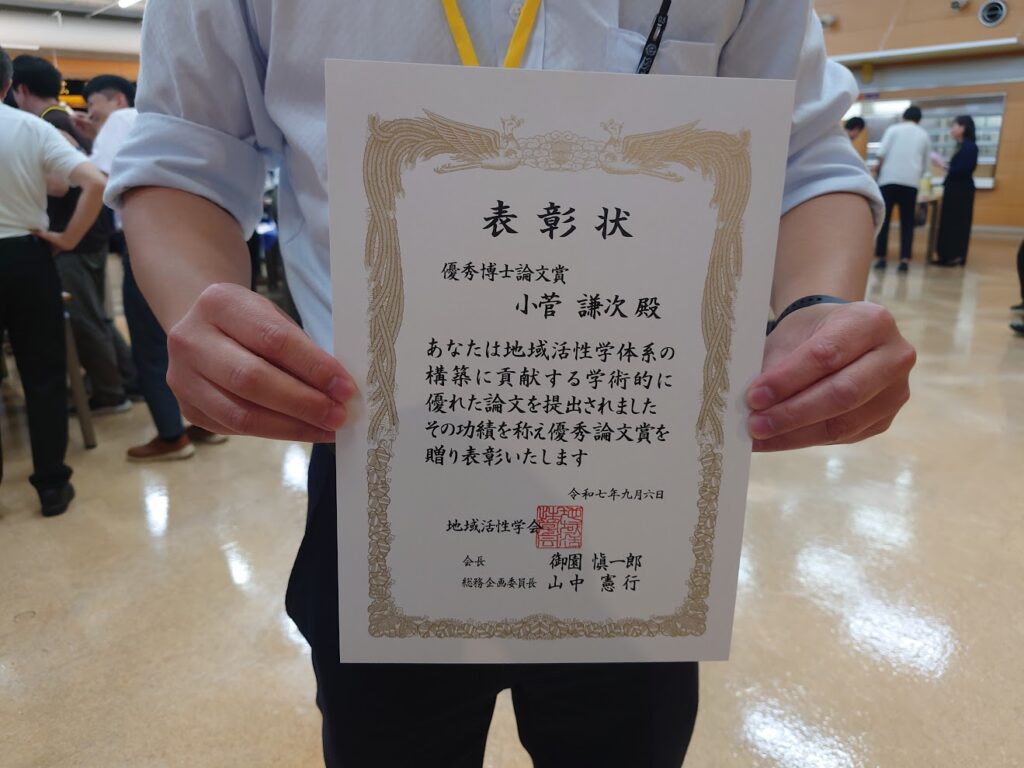 表彰状
優秀博士論文賞
小菅 謙次 殿
あなたは地域活性学体系の
構築に貢献する学術的に
優れた論文を提出されました
その功績を称え優秀論文賞を
贈り表彰いたします
令和七年九月六日
地域活性学会
会長 御園 慎一郎
総務企画委員長 山中 憲行